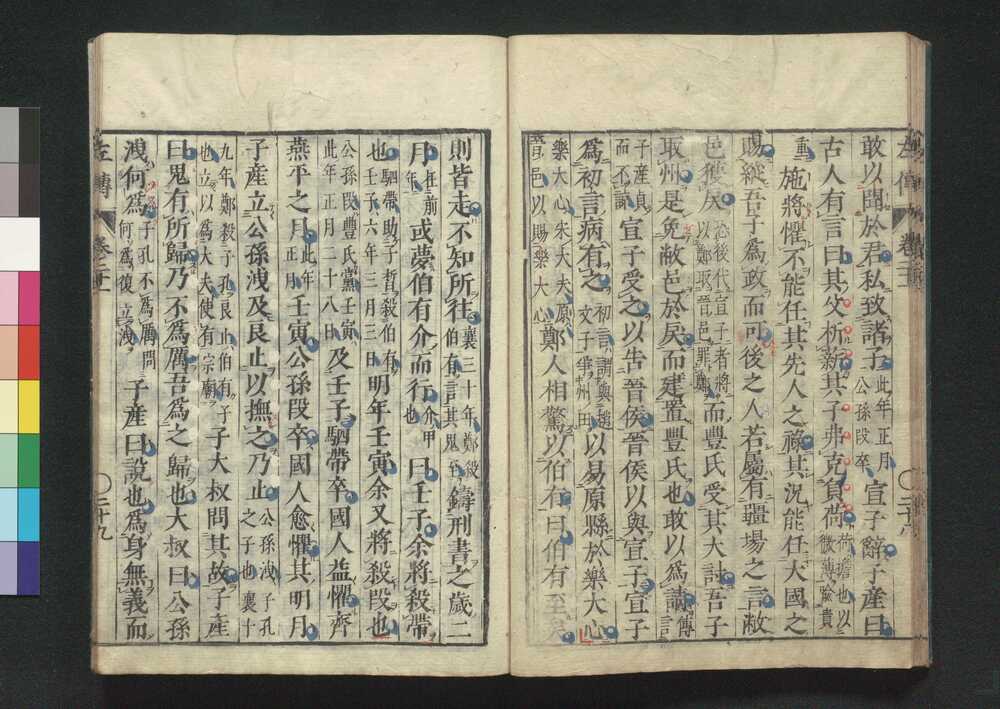 敢以聞於君私致諸子此年正月公孫段卒宣子辭子產曰
古人有言曰其父析薪其子弗克負荷荷擔也以微薄喻貴
重施將懼不能任其先人之祿其況能任大國之
賜縱吾子為政而可後之人若屬有疆場之言敝
邑獲戾恐後代宣子者將以鄭取晉邑罪鄭而豐氏受其大討吾子
取州是免敝邑於戾而建置豐氏也敢以為請傳言
子產貞而不諒宣子受之以告晉侯晉侯以與宣子宣子
為初言病有之初言謂與趙文子爭州田以易原縣於樂大心
樂大心宋大夫原晉邑以賜樂大心鄭人相驚以伯有曰伯有至矣
則皆走不知所往襄三十年鄭殺伯有言其鬼至鑄刑書之歲二
月在前年或夢伯有介而行介甲也曰壬子余將殺帶
也駟帶助子晳殺伯有壬子六年三月三日明年壬寅余又將殺段也
公孫段豐氏黨壬寅此年正月二十八日及壬子駟帶卒國人益懼齊
燕平之月此年正月壬寅公孫段卒國人愈懼其明月
子產立公孫洩及良止以撫之乃止公孫洩子孔之子也襄十
九年鄭殺子孔良止伯有子也立以為大夫使有宗廟子大叔問其故子產
曰鬼有所歸乃不為厲吾為之歸也大叔曰公孫
洩何為子孔不為厲問何為復立洩子產曰說也為身無義而
左傳
卷二十二
二十九